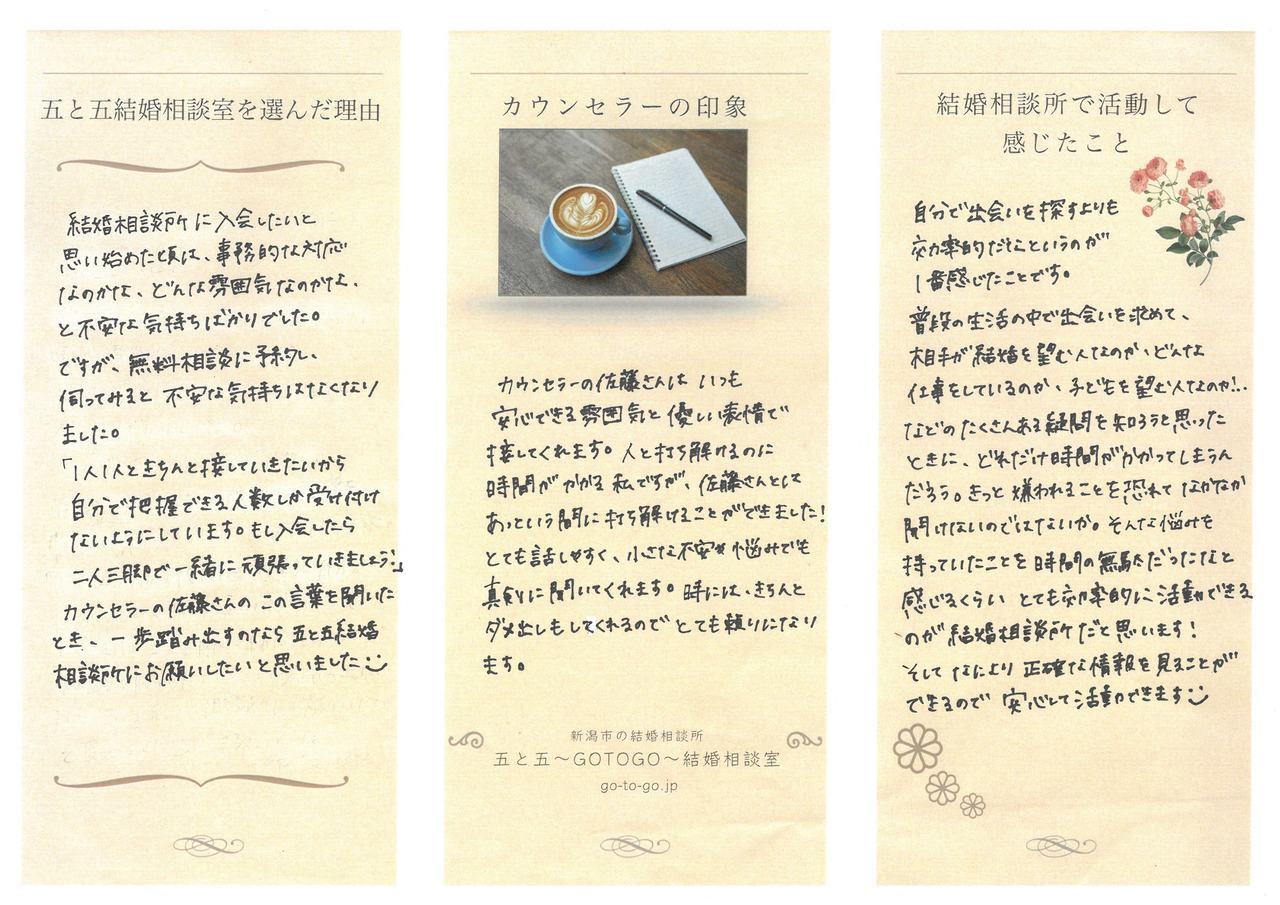 五と五結婚相談室を選んだ理由
結婚相談所に入会したいと
思い始めた頃は、事務的な対応
なのかな、どんな雰囲気なのかな、
と不安な気持ちばかりでした。
ですが、無料相談に予約し、
伺ってみると不安な気持ちはなくなり
ました。
「1人1人ときちんと接していきたいから
自分で把握できる人数しか受け付け
ないようにしています。もし入会したら
二人三脚で一緒に頑張っていきましょう！」
カウンセラーの佐藤さんのこの言葉を聞いた
とき、一歩踏み出すのなら五と五結婚
相談所にお願いしたいと思いました
カウンセラーの印象
カウンセラーの佐藤さんはいつも
安心できる雰囲気と優しい表情で
接してくれます。人と打ち解けるのに
時間がかかる私ですが、佐藤さんとは
あっという間に打ち解けることができました！
とても話しやすく、小さな不安や悩みでも
真剣に聞いてくれます。時には、きちんと
ダメ出しもしてくれるのでとても頼りになり
ます。
新潟市の結婚相談所
五と五～GOTOGO～結婚相談室
go-to-go.jp
結婚相談所で活動して
感じたこと
自分で出会いを探すよりも
効率的だなというのが
1番感じたことです。
普段の生活の中で出会いを求めて、
相手が結婚を望む人なのか、どんな
仕事をしているのか、子どもを望む人なのか…
などのたくさんある疑問を知ろうと思った
ときに、どれだけ時間がかかってしまうん
だろう。きっと嫌われることを恐れてなかなか
聞けないのではないか。そんな悩みを
持っていたことを時間の無駄だったなと
感じるくらいとても効率的に活動できる
のが結婚相談所だと思います！
そしてなにより正確な情報を見ることが
できるので安心して活動できます